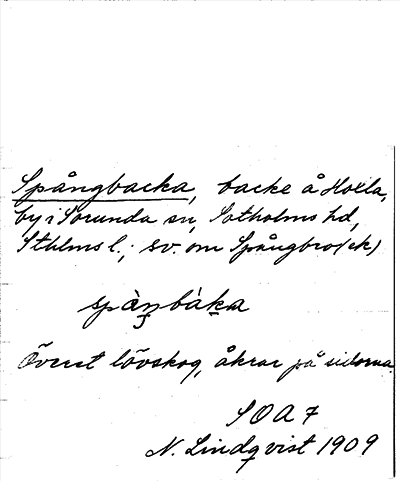 Spångbacka, backe å Hoxla,
by i Sorunda sn, Sotholms hd,
Sthlms l.; sv. om Spångbro (ek)
spàŋbàka
Överst lövskog, åkrar på sidorna.
SOA 7
N. Lindqvist 1909